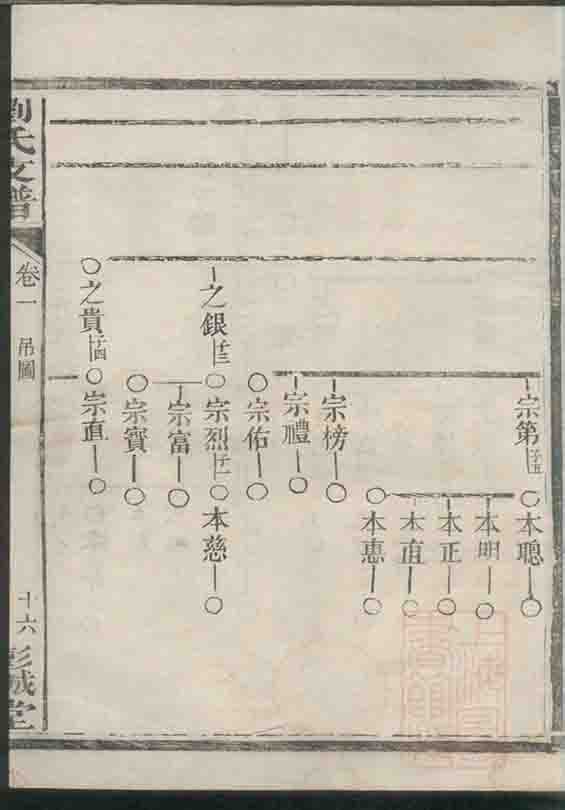 宗第子五
本聰
本明
本正
本直
本惠
宗榜
宗禮
宗佑
之銀子三
宗烈子一
本慈
宗富
宗寶
之貴子四
宗直
劉氏支譜
卷一
吊圖
十六
彭城堂